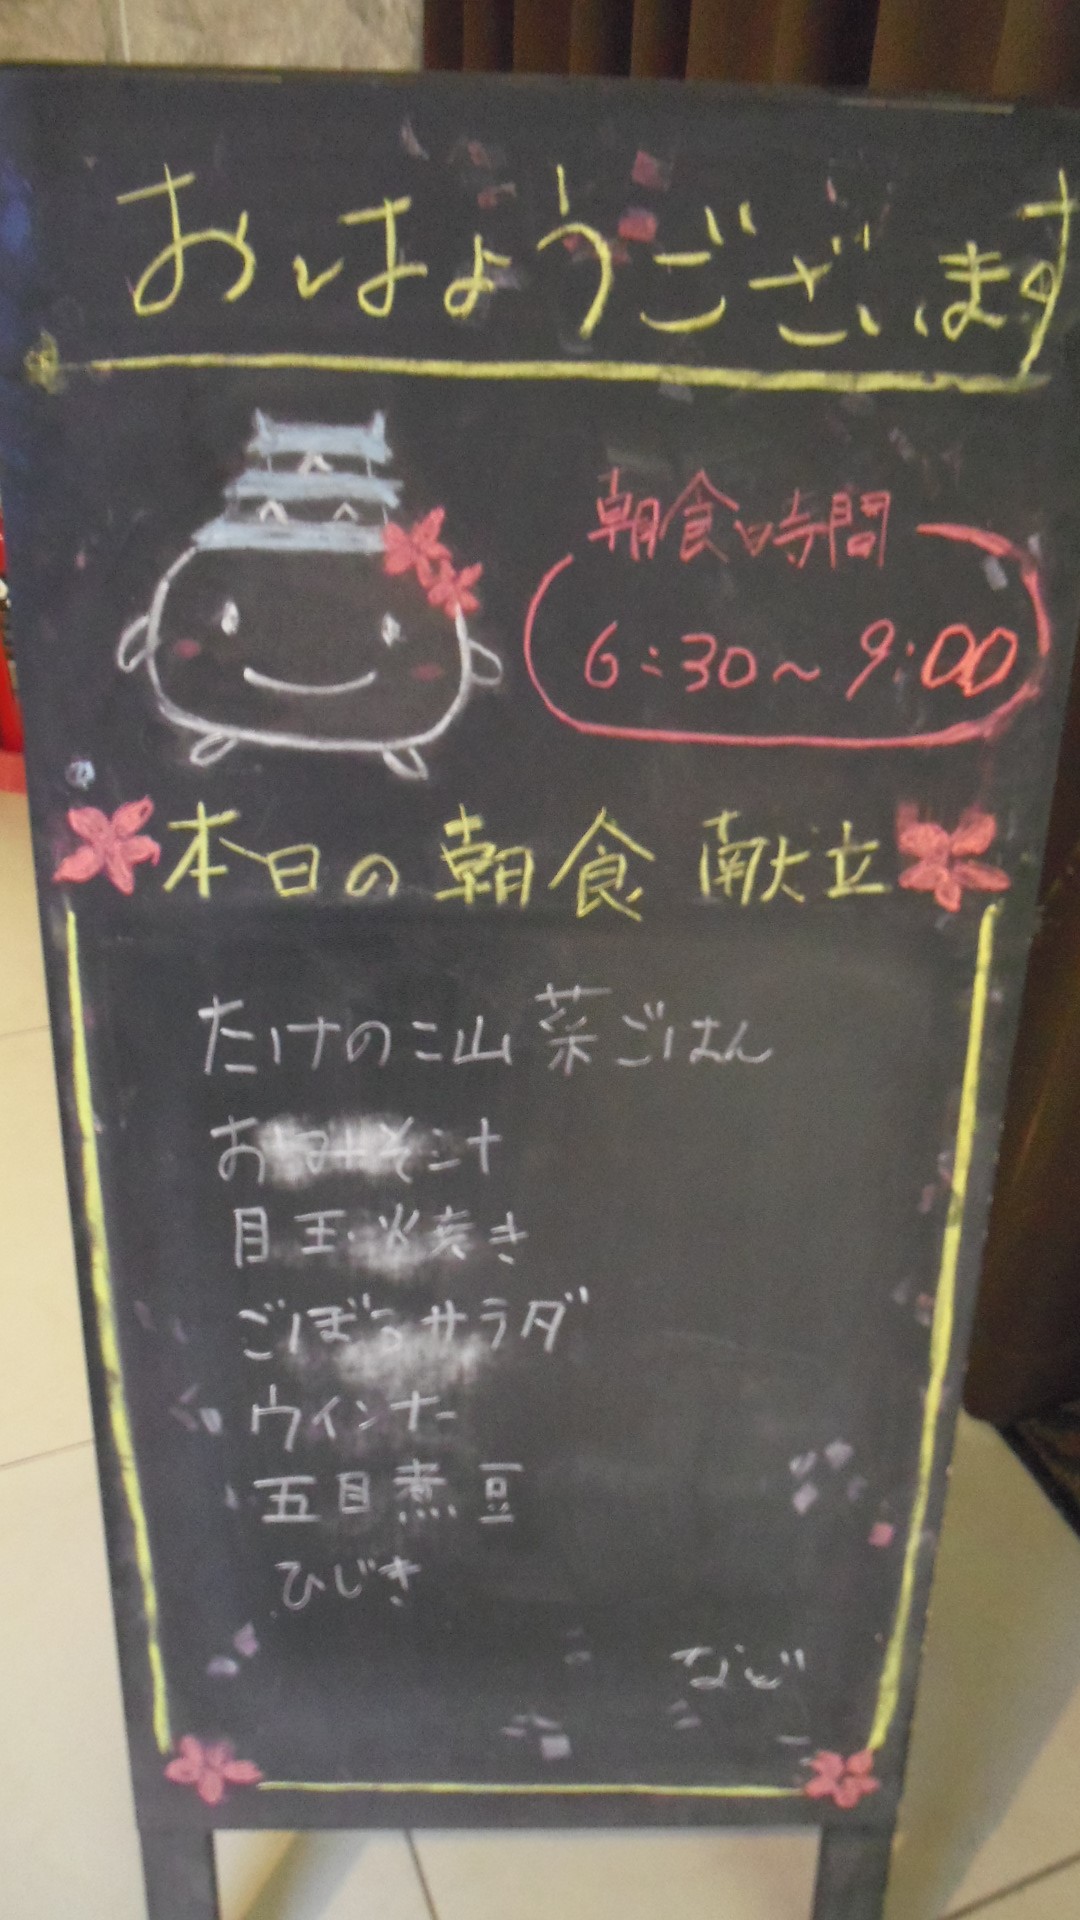 おはようございます
朝食時間
6:30～9:00
本日の朝食献立
たけのこ山菜ごはん
おみそ汁
目玉焼き
ごぼうサラダ
ウインナー
五目煮豆
ひじき
など